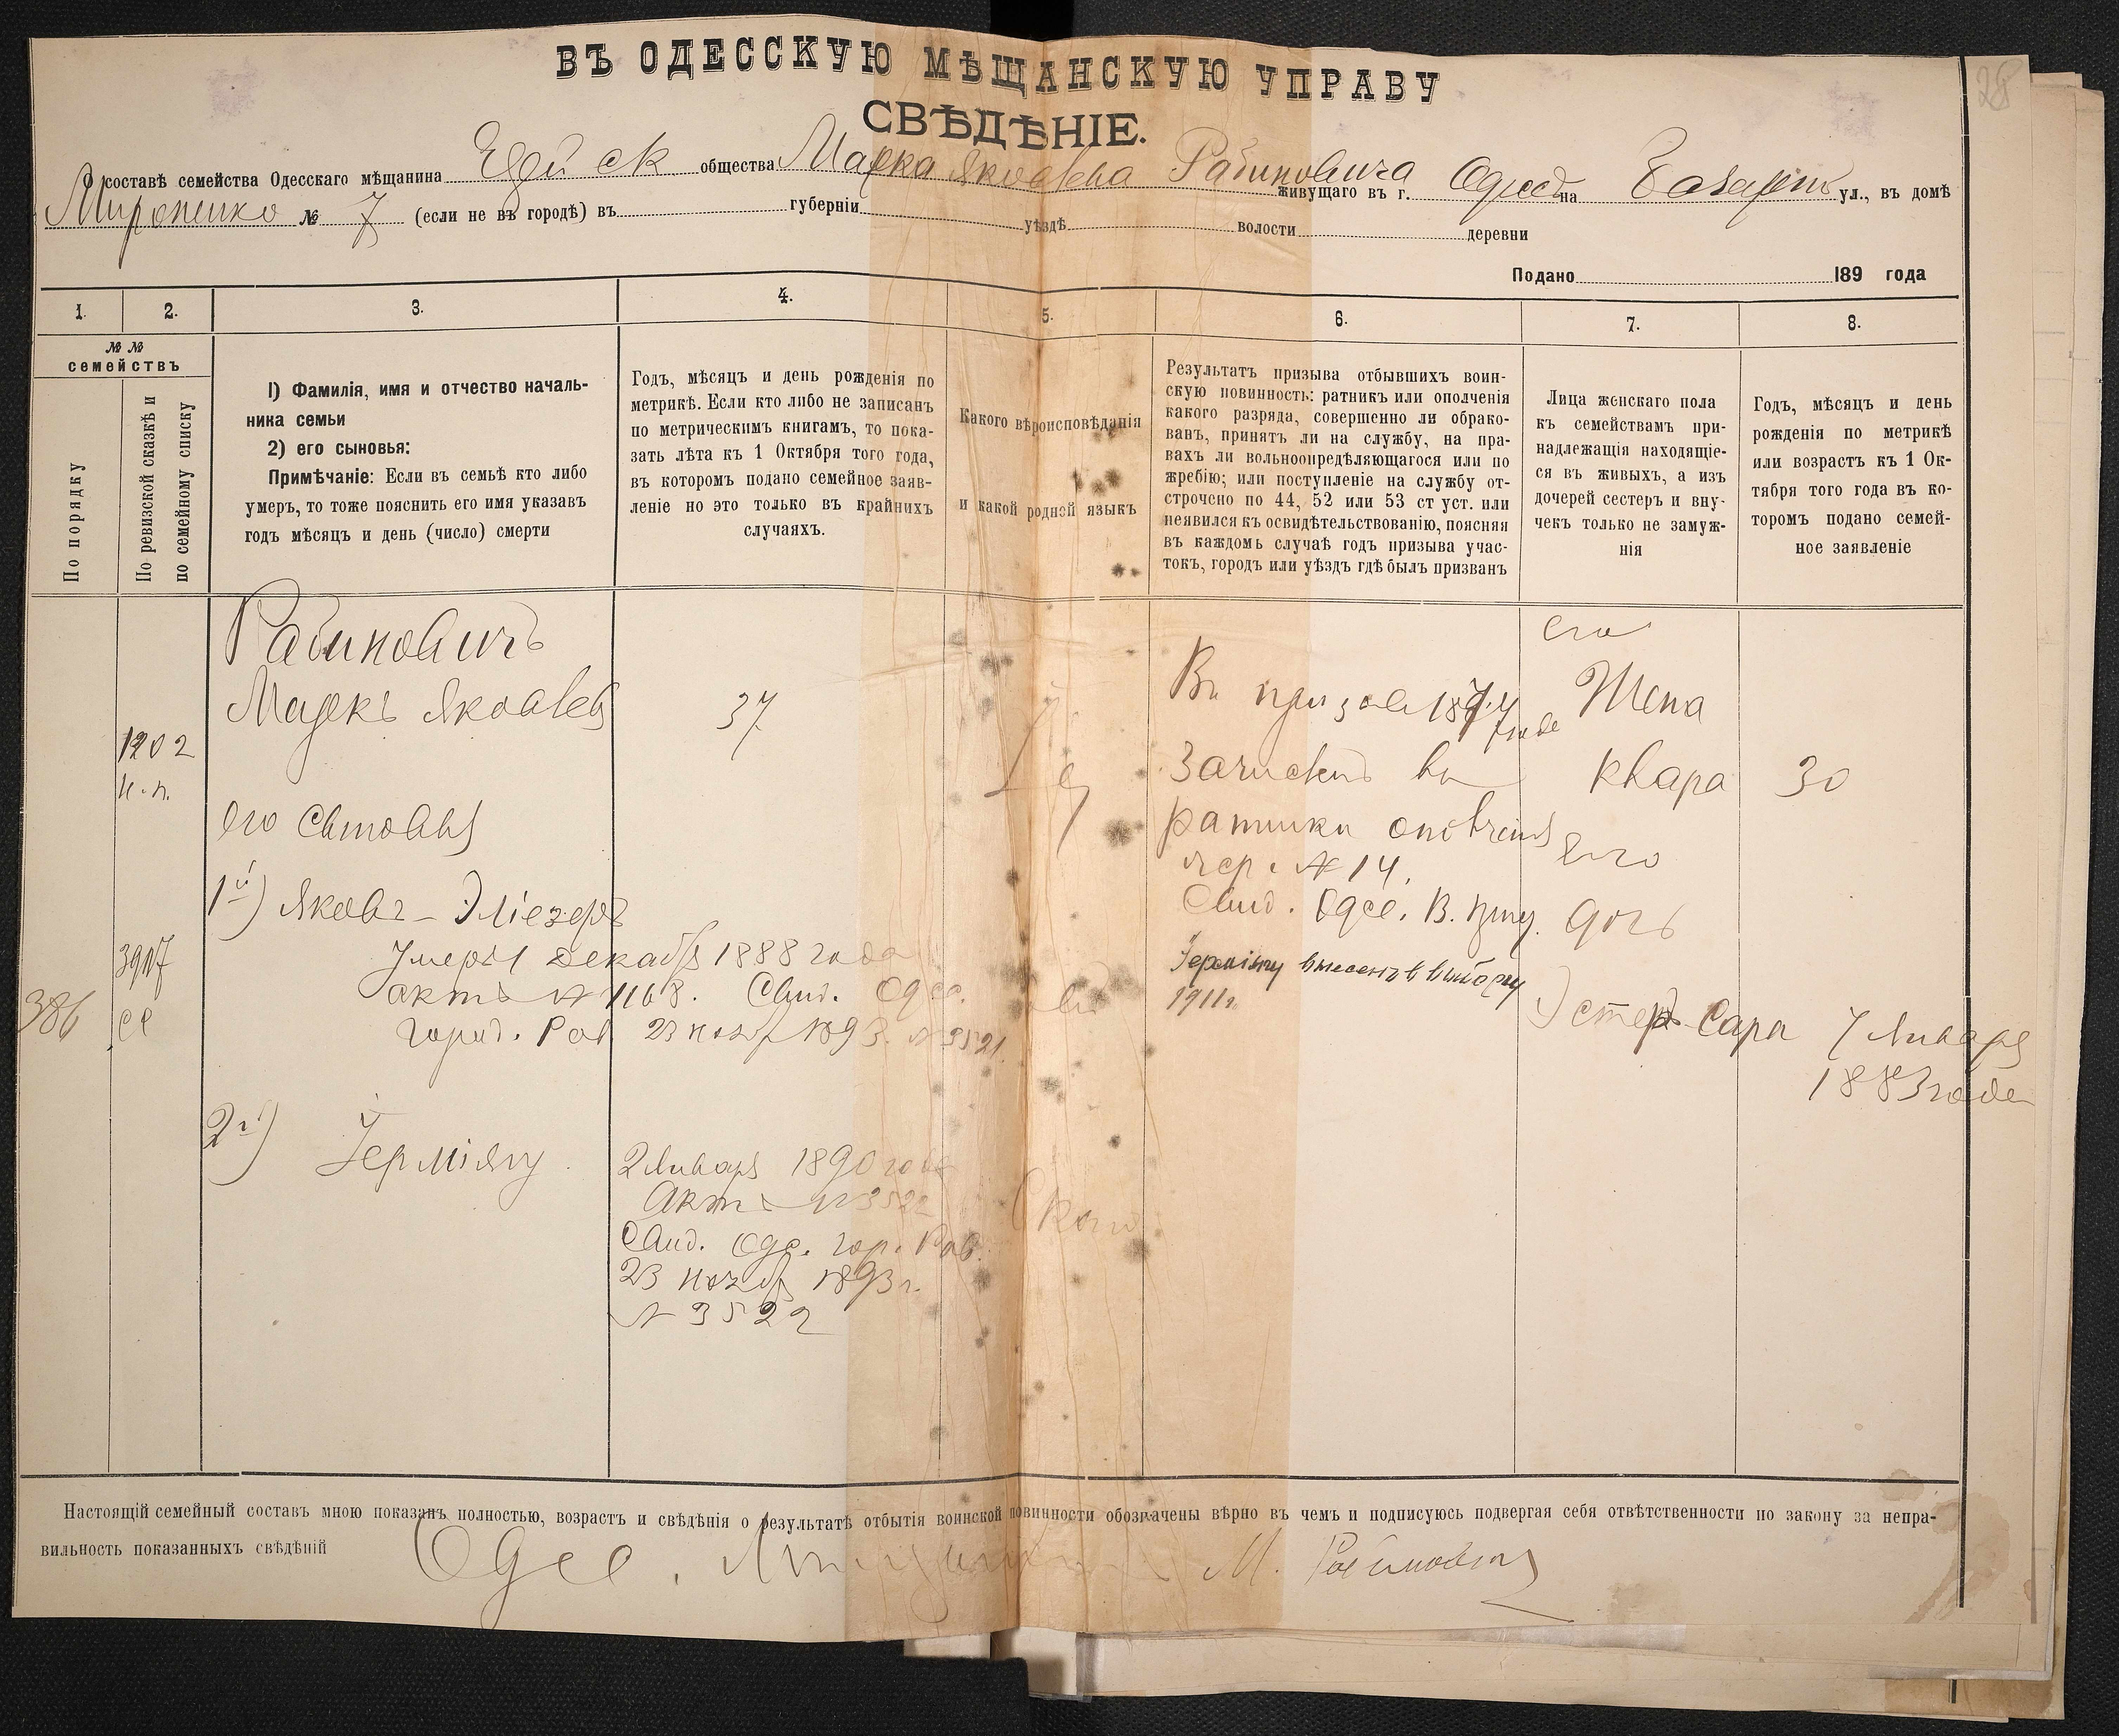 28
ВЪ ОДЕССКУЮ МѢЩАНСКУЮ УПРАВУ
СВѢДѢНІЕ.
О составѣ семейства Одесскаго мѣщанина общества Марка Яковлева Рабиновича живущаго въ г. Одессѣ на Базарной ул., въ домѣ
Мироненко № 7 (если не въ городѣ) въ губерніи уѣздѣ волости деревни
Подано 189 года
1. 2. 3. 4. 5. 6. 7. 8.
№ №
семействъ
По порядку
По ревизской сказкѣ и
по семейному списку
1) Фамилія, имя и отчество началь-
ника семьи
2) его сыновья:
Примѣчаніе: Если въ семьѣ кто либо
умеръ, то тоже пояснить его имя указавъ
годъ мѣсяцъ и день (число) смерти
Годъ, мѣсяцъ и день рожденія по
метрикѣ. Если кто либо не записанъ
по метрическимъ книгамъ, то пока-
зать лѣта къ 1 Октября того года,
въ которомъ подано семейное заяв-
леніе но это только въ крайнихъ
случаяхъ.
Какого вѣроисповѣданія
и какой родной языкъ
Результатъ призыва отбывшихъ воин-
скую повинность: ратникъ или ополченія
какого разряда, совершенно ли обрако-
ванъ, принятъ ли на службу, на пра-
вахъ ли вольноопредѣляющагося или по
жребію; или поступленіе на службу от-
строчено по 44, 52 или 53 ст уст. или
неявился къ освидѣтельствованію, поясняя
въ каждомъ случаѣ годъ призыва учас-
токъ, городъ или уѣздъ гдѣ былъ призванъ
Лица женскаго пола
къ семействамъ при-
надлежащія находящіе-
ся въ живыхъ, а изъ
дочерей сестеръ и вну-
чекъ только не замуж-
нія
Годъ, мѣсяцъ и день
рожденія по метрикѣ
или возрастъ къ 1 Ок-
тября того года въ ко-
торомъ подано семей-
ное заявленіе
386
1202
н.п.
3917
се
Рабиновичъ
Маркъ Яковлев
его сыновья
1й) Яковъ - Эліезеръ
Умеръ 1 декабря 1888 года
актъ № 1168. Свид. Одес.
город. Рав 23 нояб 1893. № 3521
2й) Іерміягу
37
2 Января 1890 года
Актъ № 3522
Свид. Одес. гор. Рав.
23 нояб 1893 г.
№ 3522
Въ призывѣ 1877 годе
Зачисленъ въ
ратники ополченія
жер. № 14.
Свид. Одес. В. прис.
Іерміягу внесенъ в выборку
1911 г.
его
Жена
Квара
30
Его
дочь
Эстеръ-Сара
7 Января
1883 года
Настоящій семейный составъ мною показанъ полностью, возрастъ и свѣдѣнія о результатѣ отбытія воинской повинности обозначены вѣрно въ чемъ и подписуюсь подвергая себя отвѣтственности по закону за непра-
вильность показанныхъ свѣдѣній
Одес. М. Рабиновичъ